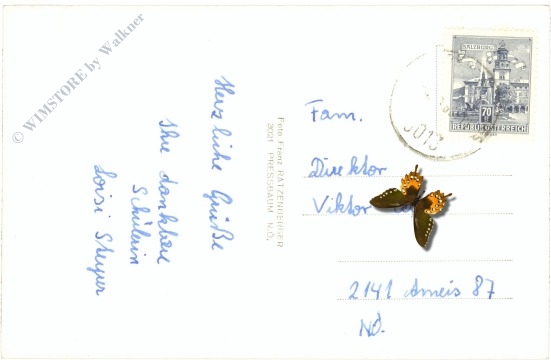 © WIMSTORE by Walkner
Herzliche Grüße
Ihre dankbare
Schülerin
Loisi
Foto Franz RATZENBERGER
3021 PRESSBAUM N.Ö.
SALZBURG
70
REPUBLIK ÖSTERREICH
3013
Fam.
Direktor
Viktor
2141 Ameis 87
NÖ.